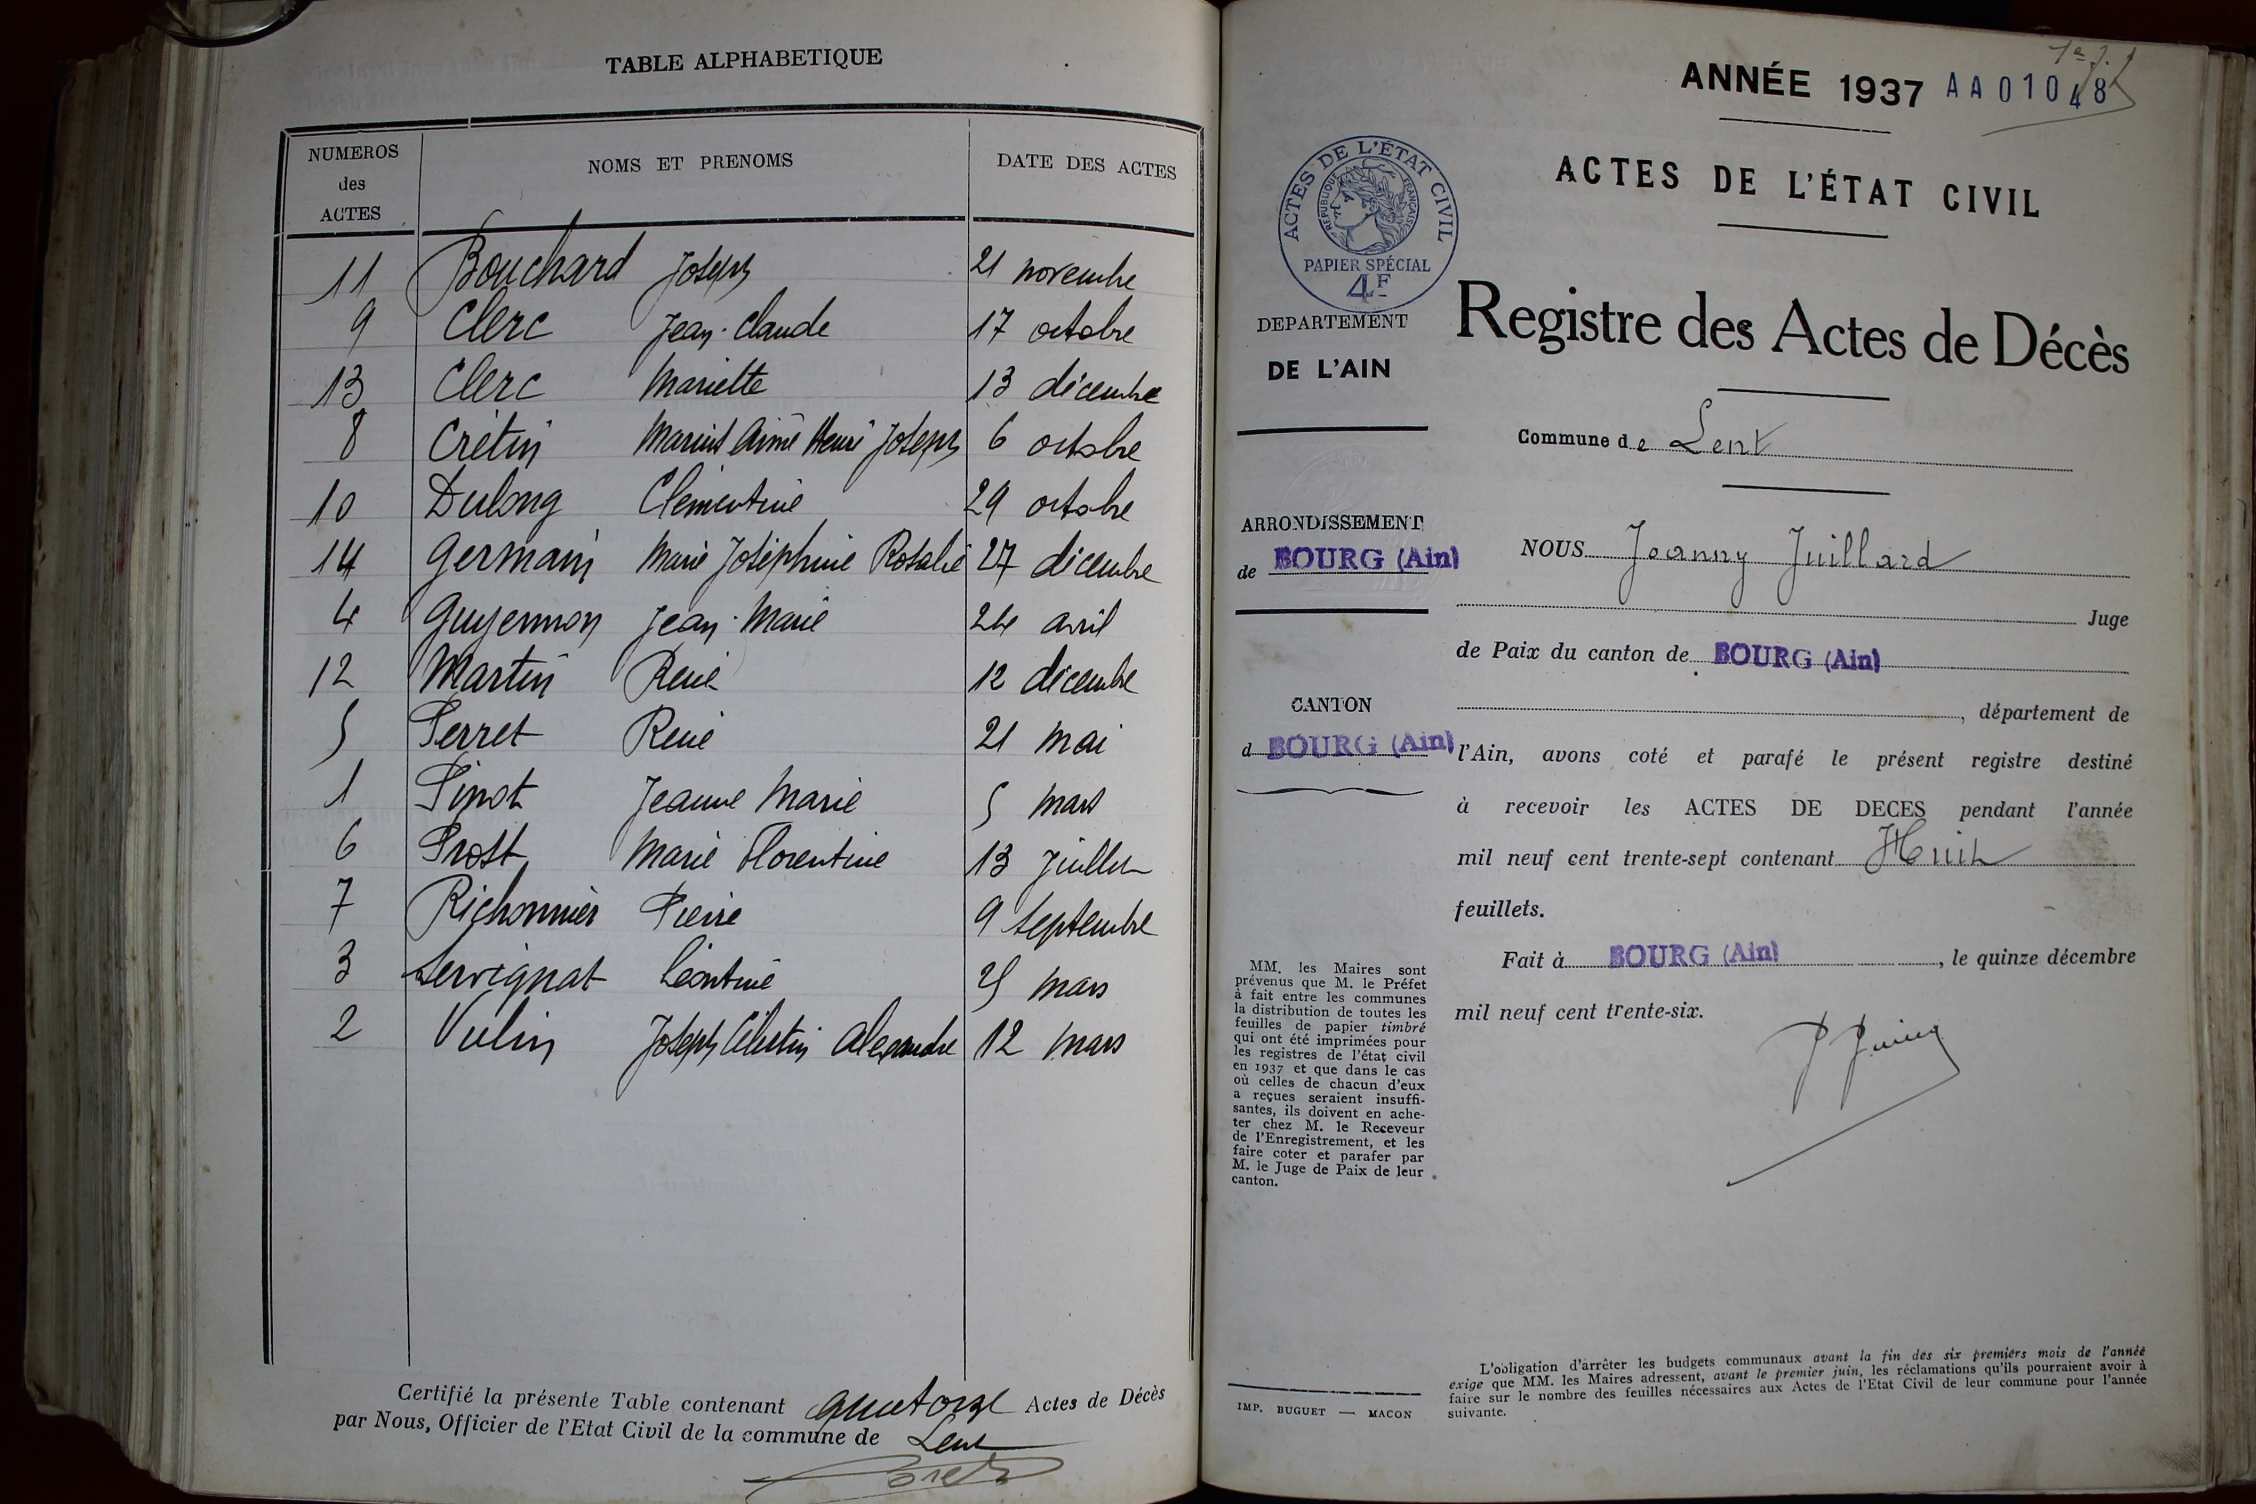 TABLE ALPHABETIQUE
NUMEROS
des
ACTES
NOMS ET PRENOMS
DATE DES ACTES
11 Bouchard Joseph 21 novembre
9 Clerc Jean-Claude 17 octobre
13 Clerc Mariette 13 décembre
8 Crétin Marius Aimé Henri Joseph 6 octobre
10 Dulong Clementine 29 octobre
14 Germain Marie Joséphine Rosalie 27 décembre
4 Guyennon Jean-Marie 24 avril
12 Martin René 12 décembre
5 Perret René 21 mai
1 Pinot Jeanne Marie 5 mars
6 Prost Marie Florentine 13 Juillet
7 Richonnier Pierre 9 septembre
3 Servignat Léontine 25 mars
2 Vulin Joseph Célestin Alexandre 12 mars
Certifié la présente Table contenant quatorze Actes de Décès
par Nous, Officier de l'Etat Civil de la commune de Lent
ANNÉE 1937 AA01048
ACTES DE L'ÉTAT CIVIL
RÉPUBLIQUE FRANÇAISE
PAPIER SPÉCIAL
4F
ACTES DE L'ÉTAT CIVIL
DEPARTEMENT
DE L'AIN
Registre des Actes de Décès
Commune de Lent
ARRONDISSEMENT
de BOURG (Ain)
NOUS Joanny Juillard
Juge
de Paix du canton de BOURG (Ain)
, département de
CANTON
d BOURG (Ain)
l'Ain, avons coté et parafé le présent registre destiné
à recevoir les ACTES DE DECES pendant l'année
mil neuf cent trente-sept contenant Huit
feuillets.
Fait à BOURG (Ain), le quinze décembre
mil neuf cent trente-six.
MM. les Maires sont
prévenus que M. le Préfet
à fait entre les communes
la distribution de toutes les
feuilles de papier timbré
qui ont été imprimées pour
les registres de l'état civil
en 1937 et que dans le cas
où celles de chacun d'eux
a reçues seraient insuffi-
santes, ils doivent en ache-
ter chez M. le Receveur
de l'Enregistrement, et les
faire coter et parafer par
M. le Juge de Paix de leur
canton.
IMP. BUGUET — MACON
L'obligation d'arrêter les budgets communaux avant la fin des six premiers mois de l'année
exige que MM. les Maires adressent, avant le premier juin, les réclamations qu'ils pourraient avoir à
faire sur le nombre des feuilles nécessaires aux Actes de l'Etat Civil de leur commune pour l'année
suivante.